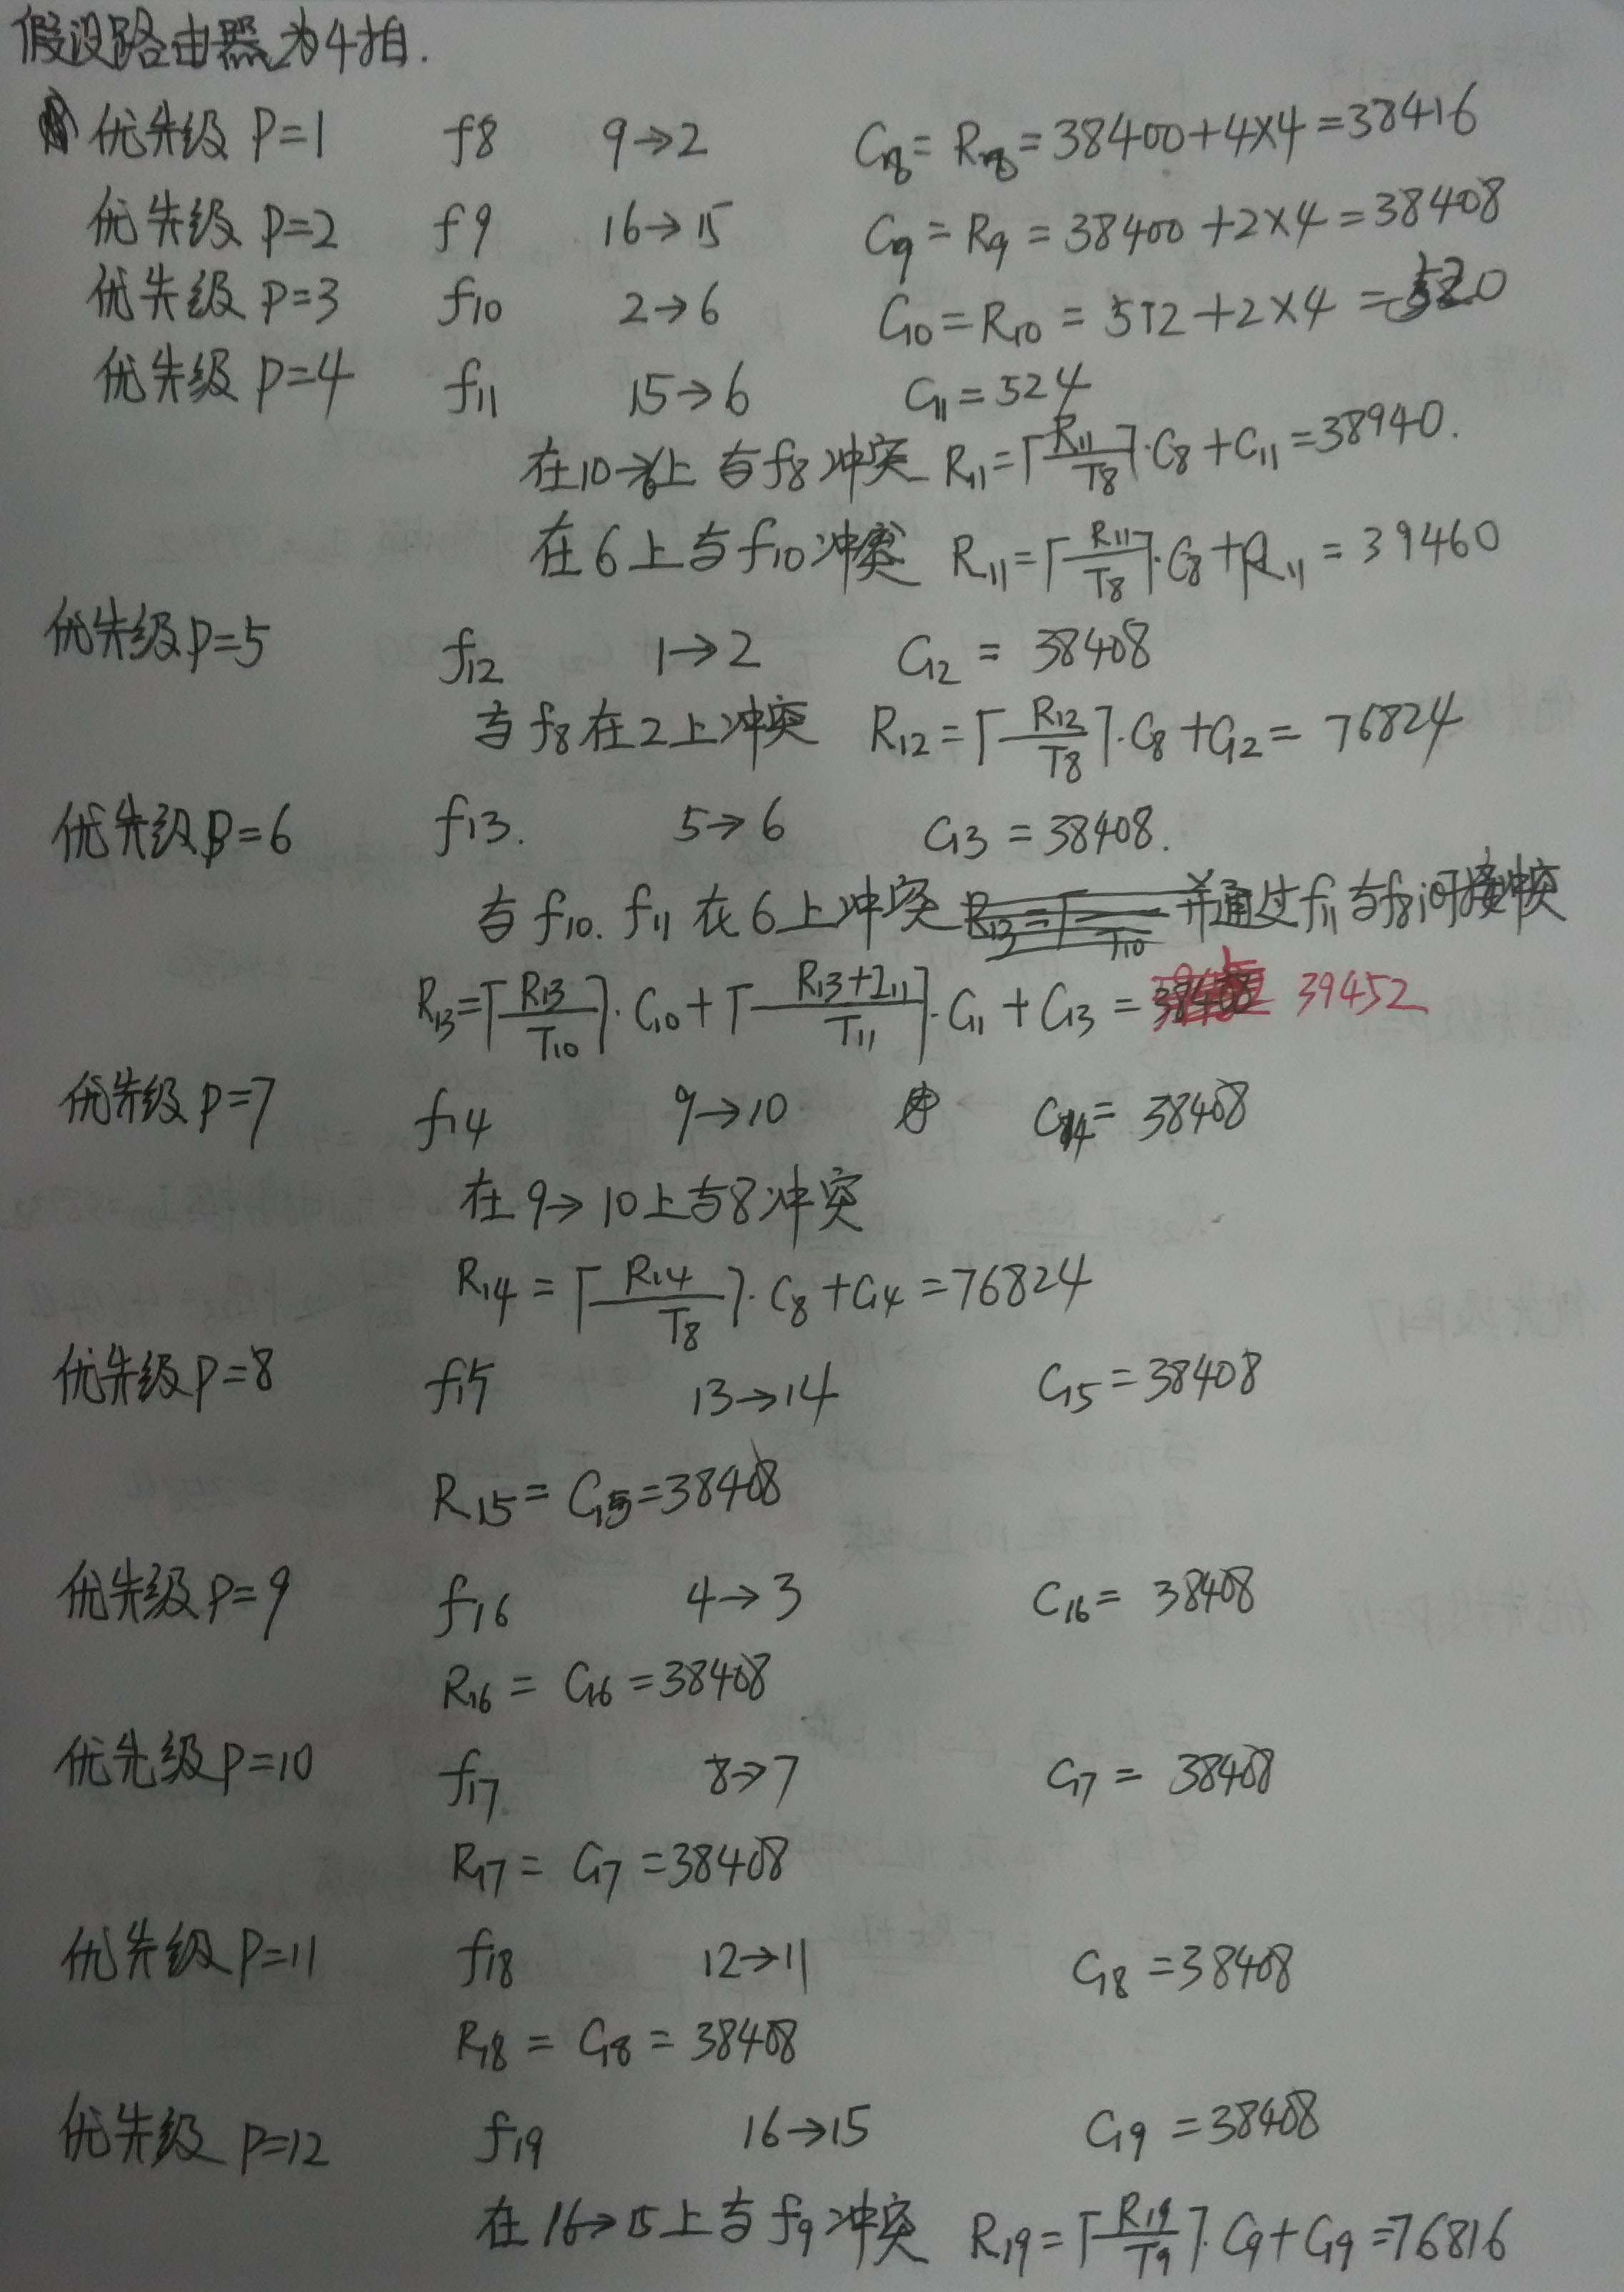 假设路由器为4拍.
优先级 P=1 f8 9→2 C8=R8=38400+4×4=38416
优先级 P=2 f9 16→15 C9=R9=38400+2×4=38408
优先级 P=3 f10 2→6 C10=R10=512+2×4=520
优先级 P=4 f11 15→6 C11=524
在10→6上与f8冲突 R11=⌈R11/T8⌉·C8+C11=38940.
在6上与f10冲突 R11=⌈R11/T8⌉·C8+R11=39460
优先级P=5 f12 1→2 C12=38408
与f8在2上冲突 R12=⌈R12/T8⌉·C8+C12=76824
优先级P=6 f13. 5→6 C13=38408.
与f10.f11在6上冲突 并通过f11与f8间接冲突
R13=⌈R13/T10⌉·C10+⌈(R13+I11)/T11⌉·C11+C13= 39452
优先级P=7 f14 9→10 C14=38408
在9→10上与8冲突
R14=⌈R14/T8⌉·C8+C14=76824
优先级P=8 f15 13→14 C15=38408
R15=C15=38408
优先级P=9 f16 4→3 C16=38408
R16=C16=38408
优先级P=10 f17 8→7 C17=38408
R17=C17=38408
优先级P=11 f18 12→11 C18=38408
R18=C18=38408
优先级 P=12 f19 16→15 C19=38408
在16→15上与f9冲突 R19=⌈R19/T9⌉·C9+C19=76816